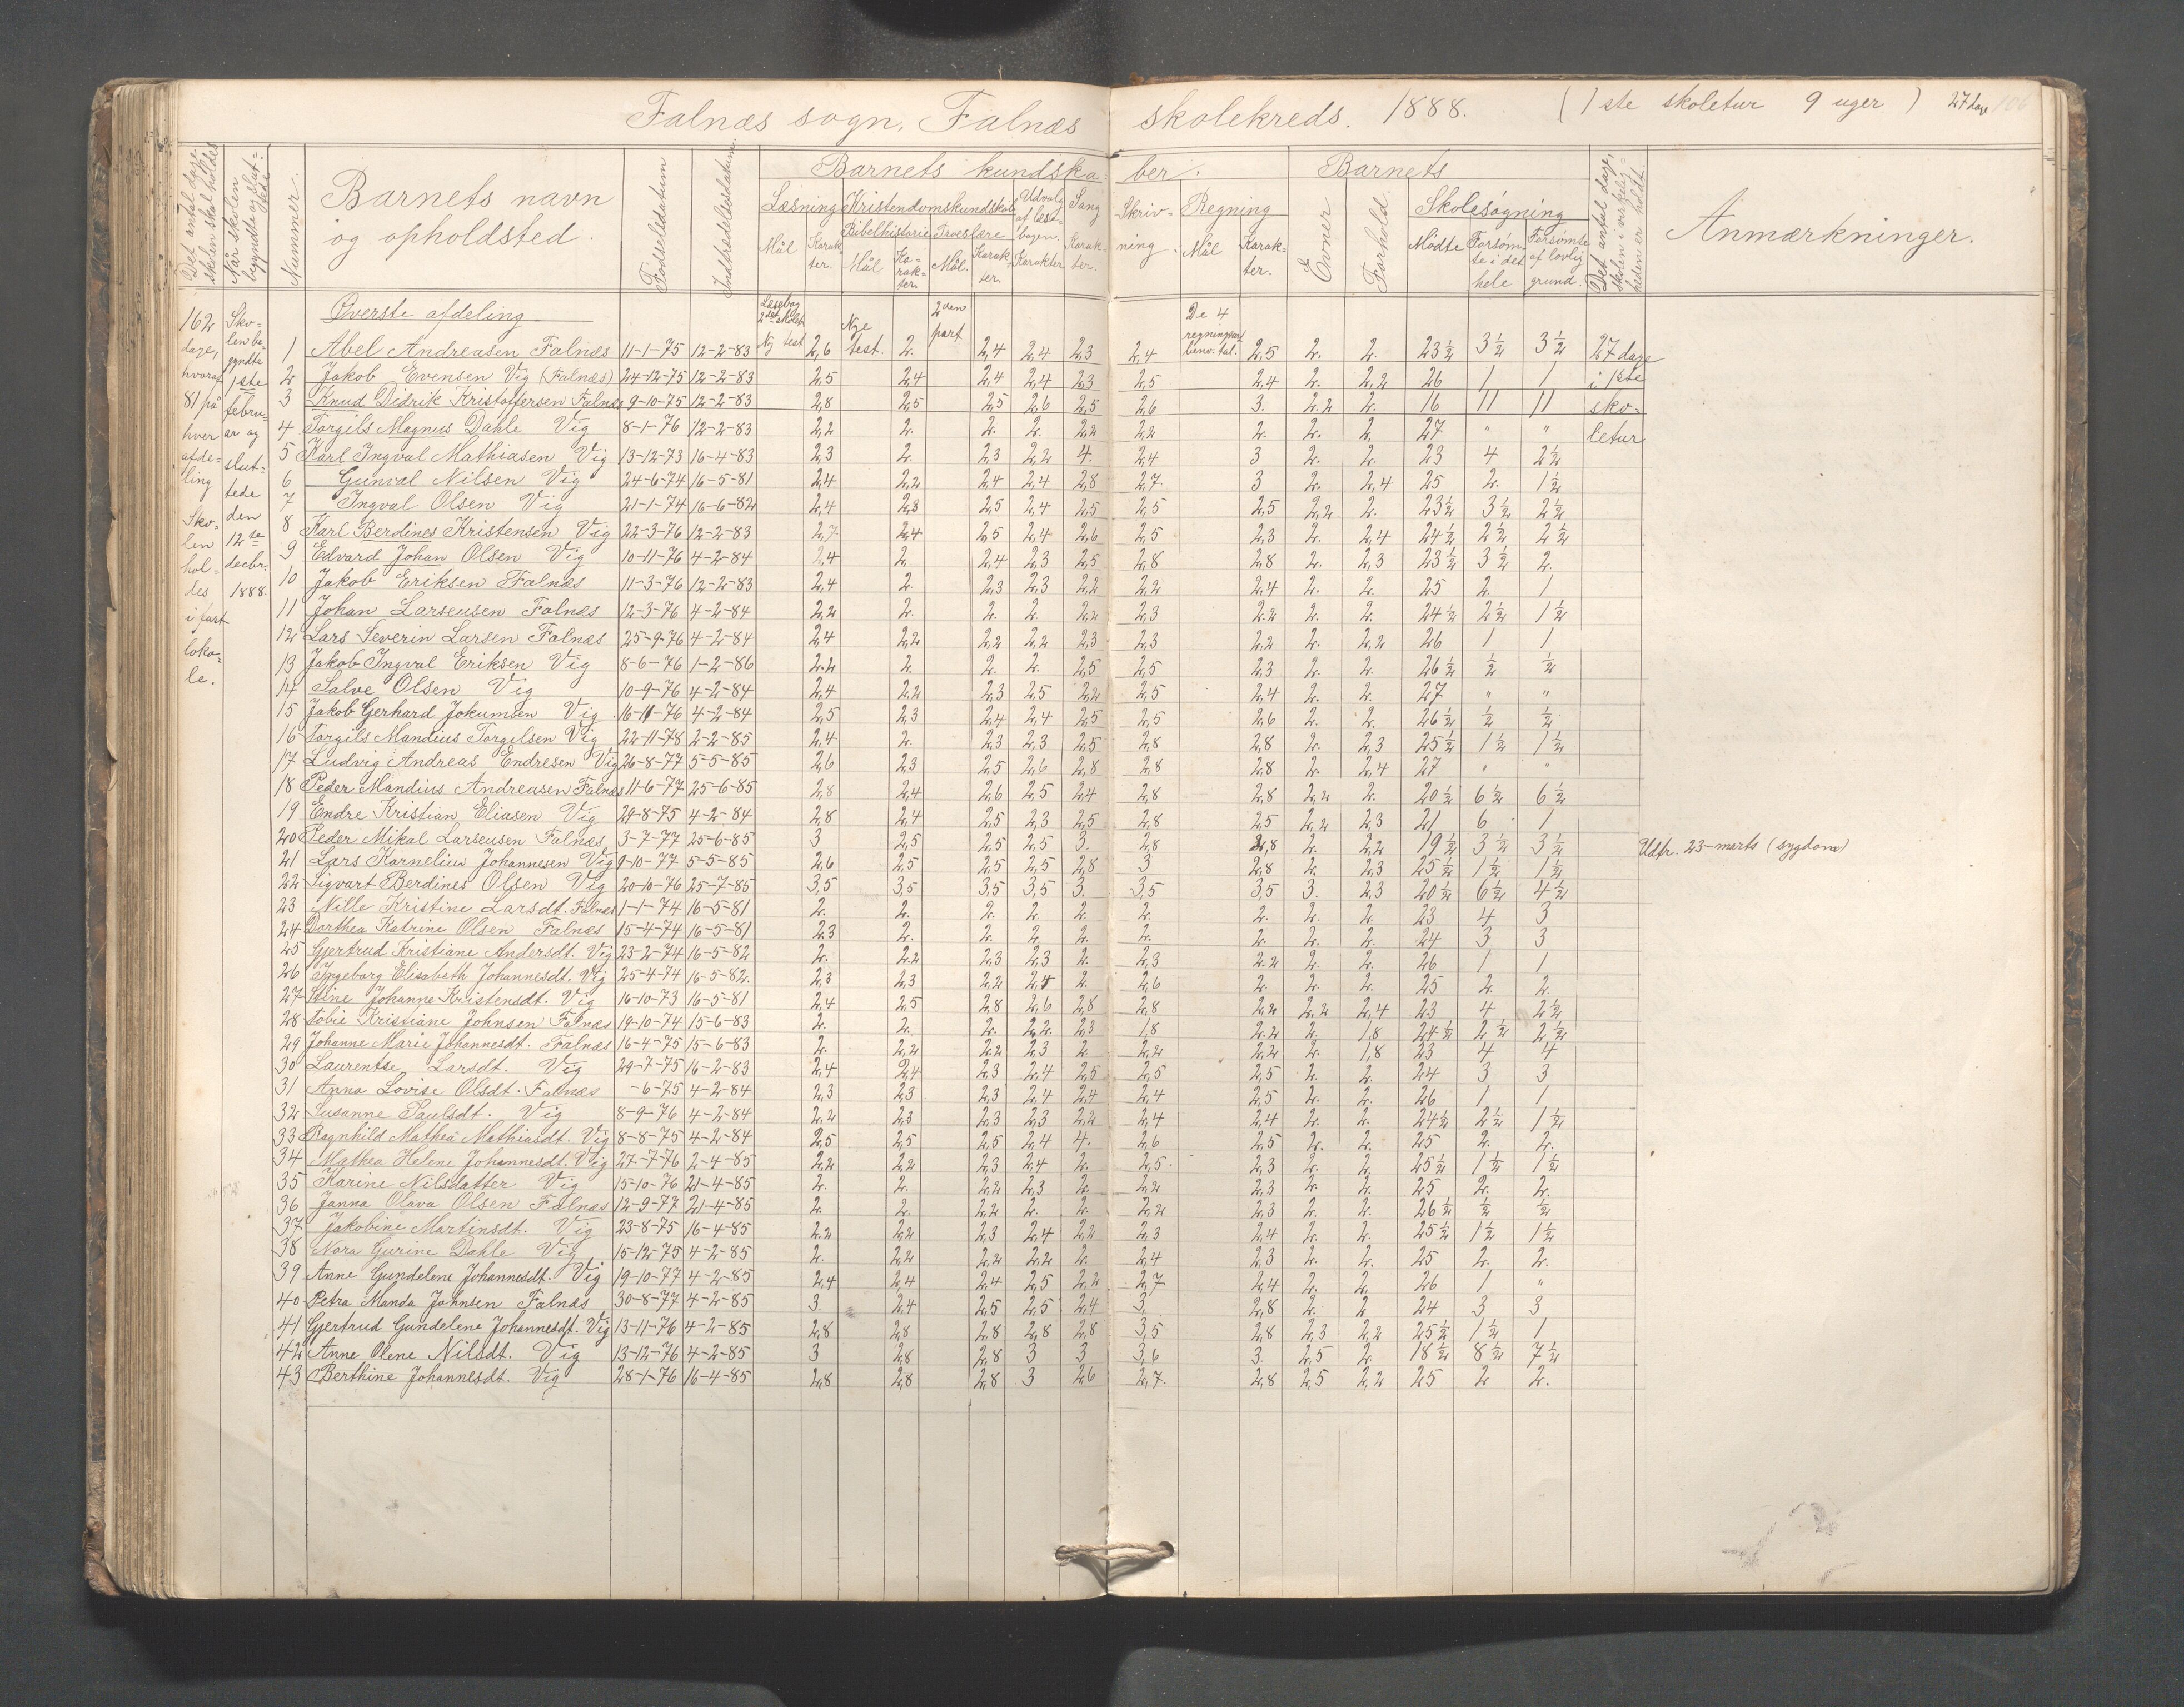 Falnæs sogn, Falnæs skolekreds. 1888. (1ste skoletur 9 uger) 27 dage 106
Det antal dage skolen skal holdes
Når skolen begyndte og sluttede
Nummer.
Barnets navn og opholdsted.
Fødselsdatum
Indtrædelsesdatum.
Barnets kundskaber.
Læsning Mål Karakter.
Kristendomskundskab
Bibelhistorie Mål Karakter.
Troeslære Mål. Karakter.
Udvalg af læsebogen. Karakter
Sang Karakter.
Skrivning.
Regning Mål Karakter.
Barnets
Evner
Forhold.
Skolesøgning
Mødte Forsømte i det hele Forsømte af lovlig grund.
Det antal dage, skolen i virkeligheden er holdt.
Anmærkninger.
162 dage, hvoraf 81 på hver afdeling Skolen holdes i fast lokale.
Skolen begyndte 1ste februar og sluttede den 12te decbr. 1888.
Øverste afdeling
Læsebog 2det skoletr. Ny test
Nye test.
2den part
De 4 regningsart. benv. tal.
27 dage i 1ste skoletur
1 Abel Andreasen Falnæs 11-1-75 12-2-83 2,6 2. 2,4 2,4 2,3 2,4 2,5 2. 2. 23½ 3½ 3½
2 Jakob Evensen Vig (Falnæs) 24-12-75 12-2-83 2,5 2,4 2,4 2,4 2,3 2,5 2,4 2. 2,2 26 1 1
3 Knud Didrik Kristoffersen Falnæs 9-10-75 12-2-83 2,8 2,5 2,5 2,6 2,5 2,6 3. 2,2 2. 16 11 11
4 Torgils Magnus Dahle Vig 8-1-76 12-2-83 2,2 2. 2. 2. 2,2 2,2 2. 2. 2. 27 " "
5 Karl Ingval Mathiasen Vig 13-12-73 16-4-83 2,3 2. 2,3 2,2 4. 2,4 3 2. 2. 23 4 2½
6 Gunval Nilsen Vig 24-6-74 16-5-81 2,4 2,2 2,4 2,4 2,8 2,7 3 2. 2,4 25 2. 1½
7 Ingval Olsen Vig 21-1-74 16-6-82 2,4 2,3 2,5 2,4 2,5 2,5 2,5 2,2 2. 23½ 3½ 2½
8 Karl Berdines Kristensen Vig 22-3-76 12-2-83 2,7 2,4 2,5 2,4 2,6 2,5 2,3 2. 2,4 24½ 2½ 2½
9 Edvard Johan Olsen Vig 10-11-76 4-2-84 2,4 2. 2,4 2,3 2,5 2,8 2,8 2. 2,3 23½ 3½ 2.
10 Jakob Eriksen Falnæs 11-3-76 12-2-83 2,4 2. 2,3 2,3 2,2 2,2 2,4 2. 2. 25 2. 1
11 Johan Larseusen Falnæs 12-3-76 4-2-84 2,2 2. 2. 2. 2,2 2,3 2,2 2. 2. 24½ 2½ 1½
12 Lars Severin Larsen Falnæs 25-9-76 4-2-84 2,4 2,2 2,2 2,2 2,3 2,3 2,2 2. 2,2 26 1 1
13 Jakob Ingval Eriksen Vig 8-6-76 1-2-86 2,2 2. 2. 2. 2,5 2,5 2,3 2. 2. 26½ ½ ½
14 Salve Olsen Vig 10-9-76 4-2-84 2,4 2,2 2,3 2,5 2,2 2,5 2,4 2. 2. 27 " "
15 Jakob Gerhard Jokumsen Vig 16-11-76 4-2-84 2,5 2,3 2,4 2,4 2,5 2,5 2,6 2. 2. 26½ ½ ½
16 Torgils Mandius Torgilsen Vig 22-11-78 2-2-85 2,4 2. 2,3 2,3 2,5 2,8 2,8 2. 2,3 25½ 1½ 1½
17 Ludvig Andreas Endresen Vig 26-8-77 5-5-85 2,6 2,3 2,5 2,6 2,8 2,8 2,8 2. 2,4 27 " "
18 Peder Mandius Andreasen Falnæs 11-6-77 25-6-85 2,8 2,4 2,6 2,5 2,4 2,8 2,8 2,2 2. 20½ 6½ 6½
19 Endre Kristian Eliasen Vig 29-8-75 4-2-84 2,8 2,4 2,5 2,3 2,5 2,8 2,5 2,2 2,3 21 6 1
20 Peder Mikal Larseusen Falnæs 3-7-77 25-6-85 3 2,5 2,5 2,5 3. 2,8 2,8 2. 2,2 19½ 3½ 3½ Udfr. 23-marts (sygdom)
21 Lars Kornelius Johannesen Vig 9-10-77 5-5-85 2,6 2,5 2,5 2,5 2,8 3 2,8 2. 2,3 25½ 1½ 1½
22 Sigvart Berdines Olsen Vig 20-10-76 25-7-85 3,5 3,5 3,5 3,5 3. 3,5 3,5 3. 2,3 20½ 6½ 4½
23 Nille Kristine Larsdt. Falnæs 1-1-74 16-5-81 2. 2. 2. 2. 2. 2. 2. 2. 2. 23 4 3
24 Dorthea Katrine Olsen Falnæs 15-4-74 16-5-81 2,3 2. 2. 2. 2. 2. 2. 2. 2. 24 3 3
25 Gjertrud Kristiane Andersdt. Vig 23-2-74 16-5-82 2. 2,2 2,3 2,3 2. 2,3 2,2 2. 2. 26 1 1
26 Ingeborg Elisabeth Johannesdt. Vig 25-4-74 16-5-82. 2,3 2,3 2,2 2,4 2. 2,6 2. 2. 2. 25 2. 2.
27 Stine Johanne Kristensdt. Vig 16-10-73 16-5-81 2,4 2,5 2,8 2,6 2,8 2,8 2,2 2,2 2,4 23 4 2½
28 Tobie Kristiane Johnsen Falnæs 19-10-74 15-6-83 2. 2. 2. 2,2. 2,3 1,8 2,2 2. 1,8 24½ 2½ 2½
29 Johanne Marie Johannesdt. Falnæs 16-4-75 15-6-83 2. 2,2 2,2 2,3 2 2,2 2,2 2. 1,8 23 4 4
30 Laurentse Larsdt. Vig 29-7-75 16-2-83 2,4 2,4 2,3 2,4 2,5 2,5 2,5 2. 2. 24 3 3
31 Anna Lovise Olsdt. Falnæs -6-75 4-2-84 2,3 2,3 2,3 2,4 2,4 2,4 2,5 2. 2. 26 1 1
32 Susanne Paulsdt. Vig 8-9-76 4-2-84 2,2 2,3 2,3 2,3 2,2 2,4 2,4 2. 2. 24½ 2½ 1½
33 Ragnhild Mathea Mathiasdt. Vig 8-8-75 4-2-84 2,5 2,5 2,5 2,4 4. 2,6 2,5 2. 2. 25 2. 2.
34 Mathea Helene Johannesdt. Vig 27-7-76 2-4-85 2,2 2,2 2,3 2,4 2. 2,5. 2,3 2. 2. 25½ 1½ 1½
35 Karine Nilsdatter Vig 15-10-76 21-4-85 2. 2. 2,2 2,3 2. 2,2 2,3 2. 2. 25 2. 2.
36 Janna Olava Olsen Falnæs 12-9-77 21-4-85 2. 2. 2,2 2. 2. 2,2 2,3 2. 2. 26½ ½ ½
37 Jakobine Martinsdt. Vig 23-8-75 16-4-85 2,2 2,2 2,3 2,4 2,2 2,3 2,4 2. 2. 25½ 1½ 1½
38 Nora Gurine Dahle Vig 15-12-75 4-2-85 2. 2,2 2,2 2,2 2. 2,4 2,3 2. 2. 25 2. 2.
39 Anne Gundelene Johannesdt. Vig 19-10-77 4-2-85 2,4 2,4 2,4 2,5 2,2 2,7 2,4 2. 2. 26 1 "
40 Petra Manda Johnsen Falnæs 30-8-77 4-2-85 3. 2,4 2,5 2,5 2,4 3. 2,8 2. 2 24 3 3
41 Gjertrud Gundelene Johannesdt. Vig 13-11-76 4-2-85 2,8 2,8 2,8 2,8 2,8 3,5 2,8 2,3 2,2 25½ 1½ 1
42 Anne Olene Nilsdt. Vig 13-12-76 4-2-85 3 2,8 2,8 3 3 3,6 3. 2,5 2. 18½ 8½ 7½
43 Berthine Johannesdt. Vig 28-1-76 16-4-85 2,8 2,8 2,8 3 2,6 2,7. 2,8 2,5 2,2 25 2 2.